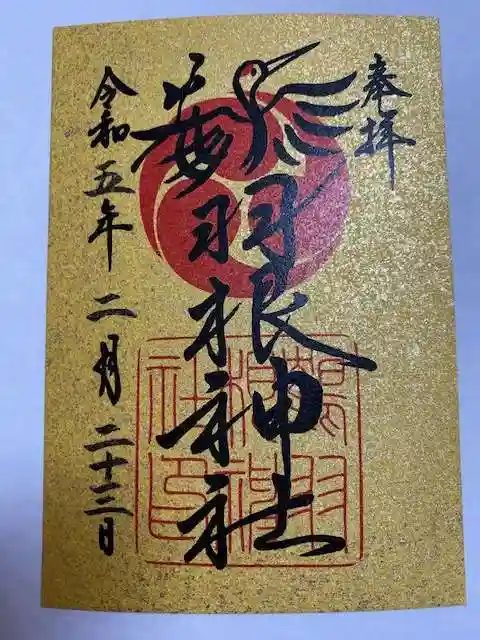 奉拝
鶴羽根神社
令和五年 二月 二十三日
鶴羽
根神
社印